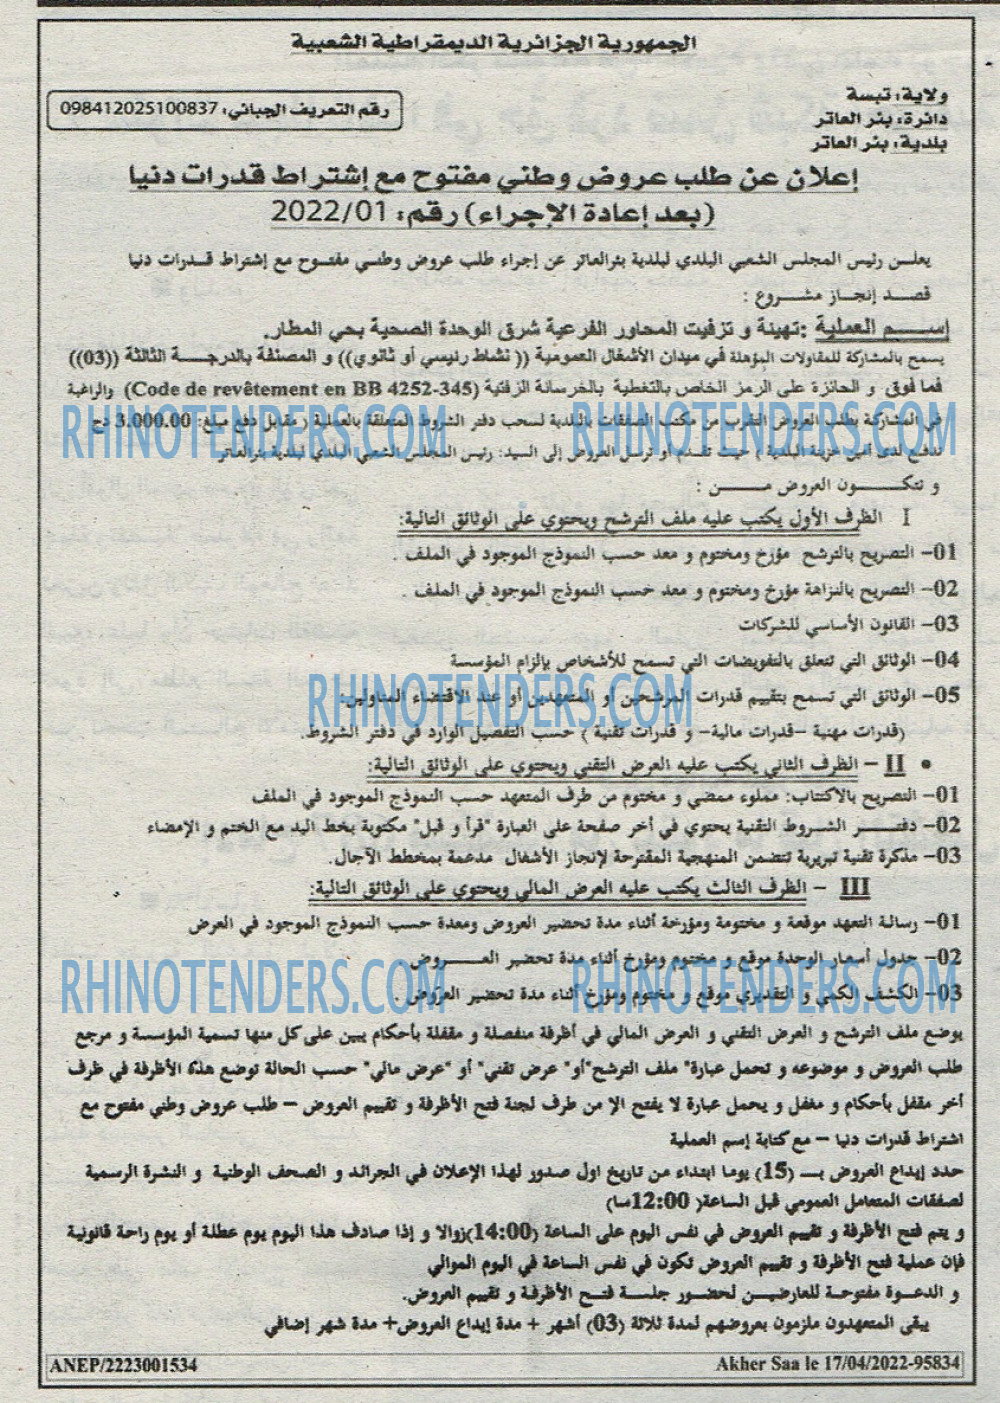 الجمهورية الجزائرية الديمقراطية الشعبية
ولاية: تبسة
دائرة: بئر العاتر
بلدية: بئر العاتر
رقم التعريف الجبائي: 098412025100837
إعلان عن طلب عروض وطني مفتوح مع إشتراط قدرات دنيا
(بعد إعادة الإجراء) رقم: 2022/01
يعلـن رئيس المجلس الشعبي البلدي لبلدية بئرالعاتر عن إجراء طلب عروض وطني مفتوح مع إشتراط قـدرات دنيا
قصـد إنجاز مشـروع :
إســم العملية :تهيئة و تزفيت المحاور الفرعية شرق الوحدة الصحية بحي المطار.
يسمح بالمشاركة للمقاولات المؤهلة في ميدان الأشغال العمومية (( نشاط رئيسي أو ثانوي)) و المصنفة بالدرجـــة الثالثة ((03))
فما فوق و الحائزة على الرمز الخاص بالتغطية بالخرسانة الزفتية (Code de revêtement en BB 4252-345) والراغبة
في المشاركة بطلب العروض التقرب من مكتب الصفقات بالبلدية لسحب دفتر الشروط المتعلقة بالعملية ( مقابل دفع مبلغ: 3.000.00 دج
تدفع لدى أمين خزينة البلدية ) حيث تقدم أو ترسل العروض إلى السيد: رئيس المجلس الشعبي البلدي لبلدية بئرالعاتر
و تتكـــون العروض مـــن :
I الظرف الأول يكتب عليه ملف الترشح ويحتوي على الوثائق التالية:
01- التصريح بالترشح مؤرخ ومختوم و معد حسب النموذج الموجود في الملف .
02- التصريح بالنزاهة مؤرخ ومختوم و معد حسب النموذج الموجود في الملف .
03- القانون الأساسي للشركات
04- الوثائق التي تتعلق بالتفويضات التي تسمح للأشخاص بإلزام المؤسسة
05- الوثائق التي تسمح بتقييم قدرات المرشحين أو المتعهدين أو عند الاقتضاء المناولين:
(قدرات مهنية –قدرات مالية- و قدرات تقنية ) حسب التفصيل الوارد في دفتر الشروط.
• II – الظرف الثاني يكتب عليه العرض التقني ويحتوي على الوثائق التالية:
01- التصريح بالاكتتاب: مملوء ممضي و مختوم من طرف المتعهد حسب النموذج الموجود في الملف
02- دفتــر الشروط التقنية يحتوي في أخر صفحة على العبارة "قرأ و قبل" مكتوبة بخط اليد مع الختم و الإمضاء
03- مذكرة تقنية تبريرية تتضمن المنهجية المقترحة لإنجاز الأشغال مدعمة بمخطط الآجال.
III – الظرف الثالث يكتب عليه العرض المالي ويحتوي على الوثائق التالية:
01- رسالة التعهد موقعة و مختومة ومؤرخة أثناء مدة تحضير العروض ومعدة حسب النموذج الموجود في العرض
02- جدول أسعار الوحدة موقع و مختوم ومؤرخ أثناء مدة تحضير العـــروض
03- الكشف الكمي و التقديري موقع و مختوم ومؤرخ أثناء مدة تحضير العروض .
يوضع ملف الترشح و العرض التقني و العرض المالي في أظرفة منفصلة و مقفلة بأحكام يبين على كل منها تسمية المؤسسة و مرجع
طلب العروض و موضوعه و تحمل عبارة" ملف الترشح"أو" عرض تقني" أو "عرض مالي" حسب الحالة توضع هذه الأظرفة في ظرف
أخر مقفل بأحكام و مغفل و يحمل عبارة لا يفتح الإ من طرف لجنة فتح الأظرفة و تقييم العروض – طلب عروض وطني مفتوح مع
اشتراط قدرات دنيا – مع كتابة إسم العملية
حدد إيداع العروض بـــ (15) يوما ابتداء من تاريخ اول صدور لهذا الإعلان في الجرائد و الصحف الوطنية و النشرة الرسمية
لصفقات المتعامل العمومي قبل الساعة( 12:00سا)
و يتم فتح الأظرفة و تقييم العروض في نفس اليوم على الساعة (14:00)زوالا و إذا صادف هذا اليوم يوم عطلة أو يوم راحة قانونية
فإن عملية فتح الأظرفة و تقييم العروض تكون في نفس الساعة في اليوم الموالي
و الدعـوة مفتوحـة للعارضيـن لحضـور جلسـة فتـح الأظرفـة و تقييـم العروض.
يبقى المتعهدون ملزمون بعروضهم لمدة ثلاثة (03) أشهر + مدة إيداع العروض+ مدة شهر إضافي
ANEP/2223001534
Akher Saa le 17/04/2022-95834
RHINOTENDERS.COM
RHINOTENDERS.COM
RHINOTENDERS.COM
RHINOTENDERS.COM
RHINOTENDERS.COM